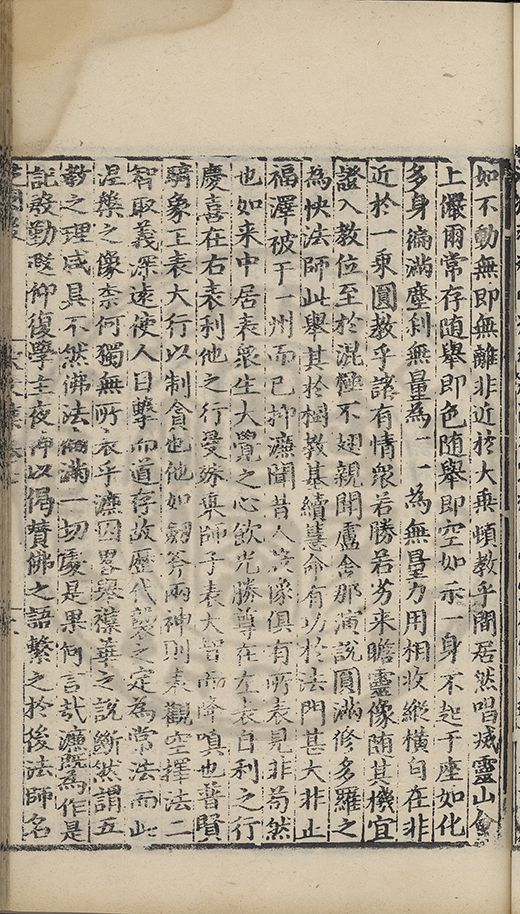 如不動無即無離非近於大乗頓教乎閒居然唱滅靈山會
上儼爾常存随舉即色随舉即空如示一身不起于座如化
多身徧滿塵刹無量為一一為無量力用相收縱横自在非
近於一乗圓教乎讓有情衆若勝若劣来瞻靈像随其機宜
證入教位至於混融不翅親聞盧舎那演說圓滿修多羅之
為快法師此舉其於樹教基續慧命有功於法門甚大非止
福澤被于一州而已抑濂聞昔人造像俱有所表見非苟然
也如来中居表衆生大覺之心飲光勝尊在左表自利之行
慶喜在右表利他之行曼殊乗師子表大智而降嗔也普賢
騎象王表大行以制貪也他如劔斧兩神則表觀空擇法二
智取義深遠使人目擊而道存故歷代襲之定為常法而此
涅槃之像柰何獨無所表乎濂因畧舉穰華之說斷然謂五
教之理咸具不然佛法徧滿一切處是果何言哉濂既為作是
記發勤敬仰復學主夜神以偈賛佛之語繫之於後法師名